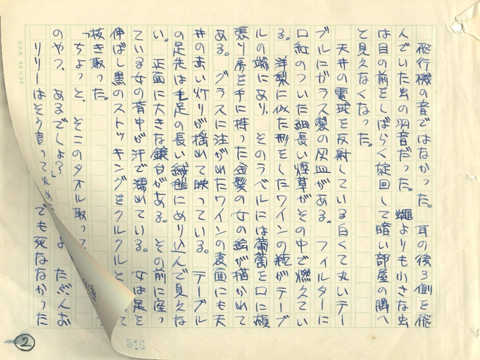 飛行機の音ではなかった。耳の後ろ側を飛
んでいた虫の羽音だった。蠅よりも小さな虫
は目の前をしばらく旋回して暗い部屋の隅へ
と見えなくなった。
天井の電球を反射している白くて丸いテー
ブルにガラス製の灰皿がある。フィルターに
口紅のついた細長い煙草がその中で燃えてい
る。洋梨に似た形をしたワインの瓶がテーブ
ルの端にあり、そのラベルには葡萄を口に頬
張り房を手に持った金髪の女の絵が描かれて
ある。グラスに注がれたワインの表面にも天
井の赤い灯りが揺れて映っている。テーブル
の足先は毛足の長い絨毯にめり込んで見えな
い。正面に大きな鏡台がある。その前に座っ
ている女の背中が汗で濡れている。女は足を
伸ばし黒のストッキングをクルクルと て
抜き取った。
「ちょっと、そこのタオル取って
のやつ、あるでしょ?」 よ たぶんお
リリーはそう言って でも死ななかった
546
2